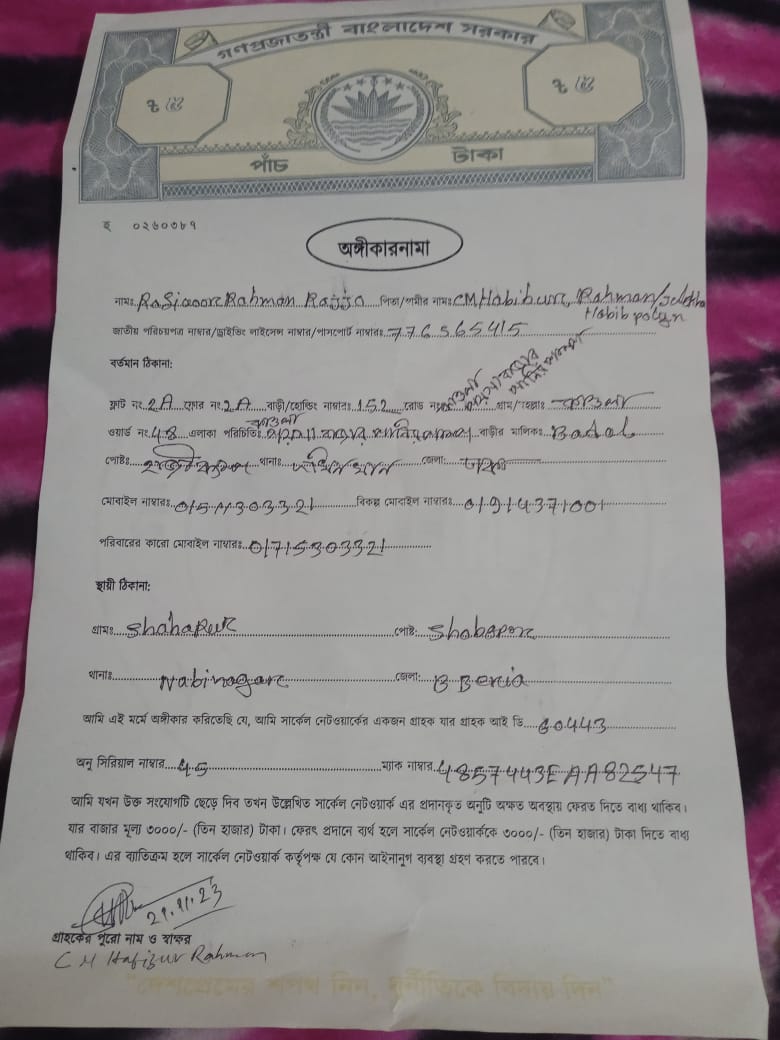 গণপ্রজাতন্ত্রী বাংলাদেশ সরকার
৫ ৫
পাঁচ টাকা
০২৬০৩৮৭
অঙ্গীকারনামা
নামঃ Rasiaoor Rahman Razza পিতা/স্বামীর নামঃ CM Habibur Rahman/
Habib polyn
জাতীয় পরিচয়পত্র নাম্বার/ড্রাইভিং লাইসেন্স নাম্বার/পাসপোর্ট নাম্বারঃ 776565415
বর্তমান ঠিকানা:
ফ্লাট নং 2A ফ্লোর নং 2A বাড়ী/হোল্ডিং নাম্বারঃ 152 রোড নংঃ কাওলা গ্রাম/মহল্লাঃ কাওলা
ওয়ার্ড নংঃ 48 এলাকা পরিচিতিঃ কাওলা বাড়ীর মালিকঃ Badal
পোষ্টঃ থানাঃ দক্ষিণখান জেলাঃ ঢাকা
মোবাইল নাম্বারঃ 01511303321 বিকল্প মোবাইল নাম্বারঃ 01914371001
পরিবারের কারো মোবাইল নাম্বারঃ 01715303321
স্থায়ী ঠিকানা:
গ্রামঃ Shahapur পোষ্ট: Shahapor
থানাঃ Nabinagar জেলা: B Beria
আমি এই মর্মে অঙ্গীকার করিতেছি যে, আমি সার্কেল নেটওয়ার্কের একজন গ্রাহক যার গ্রাহক আই ডি 60443
অনু সিরিয়াল নাম্বার 45 ম্যাক নাম্বার 4857443EAA82547
আমি যখন উক্ত সংযোগটি ছেড়ে দিব তখন উল্লেখিত সার্কেল নেটওয়ার্ক এর প্রদানকৃত অনুটি অক্ষত অবস্থায় ফেরত দিতে বাধ্য থাকিব।
যার বাজার মূল্য ৩০০০/- (তিন হাজার) টাকা। ফেরৎ প্রদানে ব্যর্থ হলে সার্কেল নেটওয়ার্ককে ৩০০০/- (তিন হাজার) টাকা দিতে বাধ্য
থাকিব। এর ব্যতিক্রম হলে সার্কেল নেটওয়ার্ক কর্তৃপক্ষ যে কোন আইনানুগ ব্যবস্থা গ্রহণ করতে পারবে।
21.11.23
গ্রাহকের পুরো নাম ও স্বাক্ষর
C M Hafizur Rahman
"দেশপ্রেমের শপথ নিন, দুর্নীতিকে বিদায় দিন"